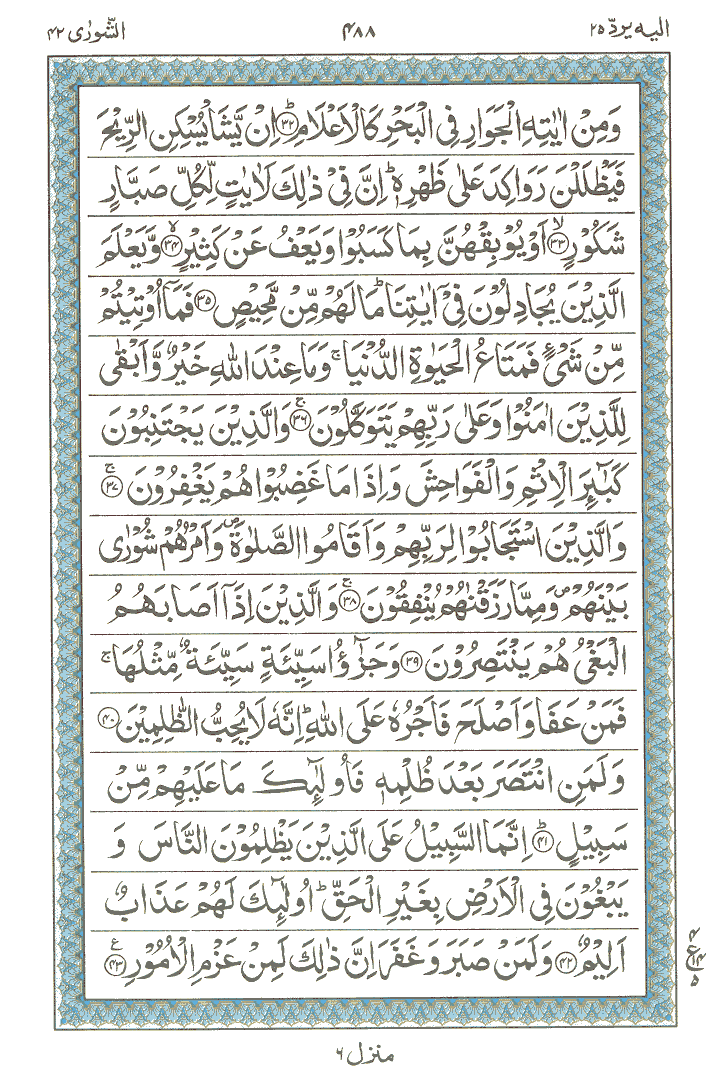 اليه يردّ ٢٥ ٤٨٨ الشّورٰى ٤٢
وَمِنْ اٰيٰتِهِ الْجَوَارِ فِى الْبَحْرِ كَالْاَعْلَامِؕ ﴿۳۲﴾ اِنْ يَّشَاْ يُسْكِنِ الرِّيْحَ
فَيَظْلَلْنَ رَوَاكِدَ عَلٰى ظَهْرِهٖؕ اِنَّ فِىْ ذٰلِكَ لَاٰيٰتٍ لِّكُلِّ صَبَّارٍ
شَكُوْرٍۙ ﴿۳۳﴾ اَوْ يُوْبِقْهُنَّ بِمَا كَسَبُوْا وَيَعْفُ عَنْ كَثِيْرٍۙ ﴿۳۴﴾ وَّيَعْلَمَ
الَّذِيْنَ يُجَادِلُوْنَ فِىْۤ اٰيٰتِنَاؕ مَا لَهُمْ مِّنْ مَّحِيْصٍ ﴿۳۵﴾ فَمَاۤ اُوْتِيْتُمْ
مِّنْ شَىْءٍ فَمَتَاعُ الْحَيٰوةِ الدُّنْيَاۚ وَمَا عِنْدَ اللّٰهِ خَيْرٌ وَّاَبْقٰى
لِلَّذِيْنَ اٰمَنُوْا وَعَلٰى رَبِّهِمْ يَتَوَكَّلُوْنَۚ ﴿۳۶﴾ وَالَّذِيْنَ يَجْتَنِبُوْنَ
كَبٰٓئِرَ الْاِثْمِ وَالْفَوَاحِشَ وَاِذَا مَا غَضِبُوْا هُمْ يَغْفِرُوْنَۚ ﴿۳۷﴾
وَالَّذِيْنَ اسْتَجَابُوْا لِرَبِّهِمْ وَاَقَامُوا الصَّلٰوةَ۪ وَاَمْرُهُمْ شُوْرٰى
بَيْنَهُمْ۪ وَمِمَّا رَزَقْنٰهُمْ يُنْفِقُوْنَۚ ﴿۳۸﴾ وَالَّذِيْنَ اِذَاۤ اَصَابَهُمُ
الْبَغْىُ هُمْ يَنْتَصِرُوْنَ ﴿۳۹﴾ وَجَزٰٓؤُا سَيِّئَةٍ سَيِّئَةٌ مِّثْلُهَاۚ
فَمَنْ عَفَا وَاَصْلَحَ فَاَجْرُهٗ عَلَى اللّٰهِؕ اِنَّهٗ لَا يُحِبُّ الظّٰلِمِيْنَ ﴿۴۰﴾
وَلَمَنِ انْتَصَرَ بَعْدَ ظُلْمِهٖ فَاُولٰٓئِكَ مَا عَلَيْهِمْ مِّنْ
سَبِيْلٍؕ ﴿۴۱﴾ اِنَّمَا السَّبِيْلُ عَلَى الَّذِيْنَ يَظْلِمُوْنَ النَّاسَ وَ
يَبْغُوْنَ فِى الْاَرْضِ بِغَيْرِ الْحَقِّؕ اُولٰٓئِكَ لَهُمْ عَذَابٌ
اَلِيْمٌ ﴿۴۲﴾ وَلَمَنْ صَبَرَ وَغَفَرَ اِنَّ ذٰلِكَ لَمِنْ عَزْمِ الْاُمُوْرِ ﴿۴۳﴾ ع
۴
ع ۱۴
۵
منزل ۶